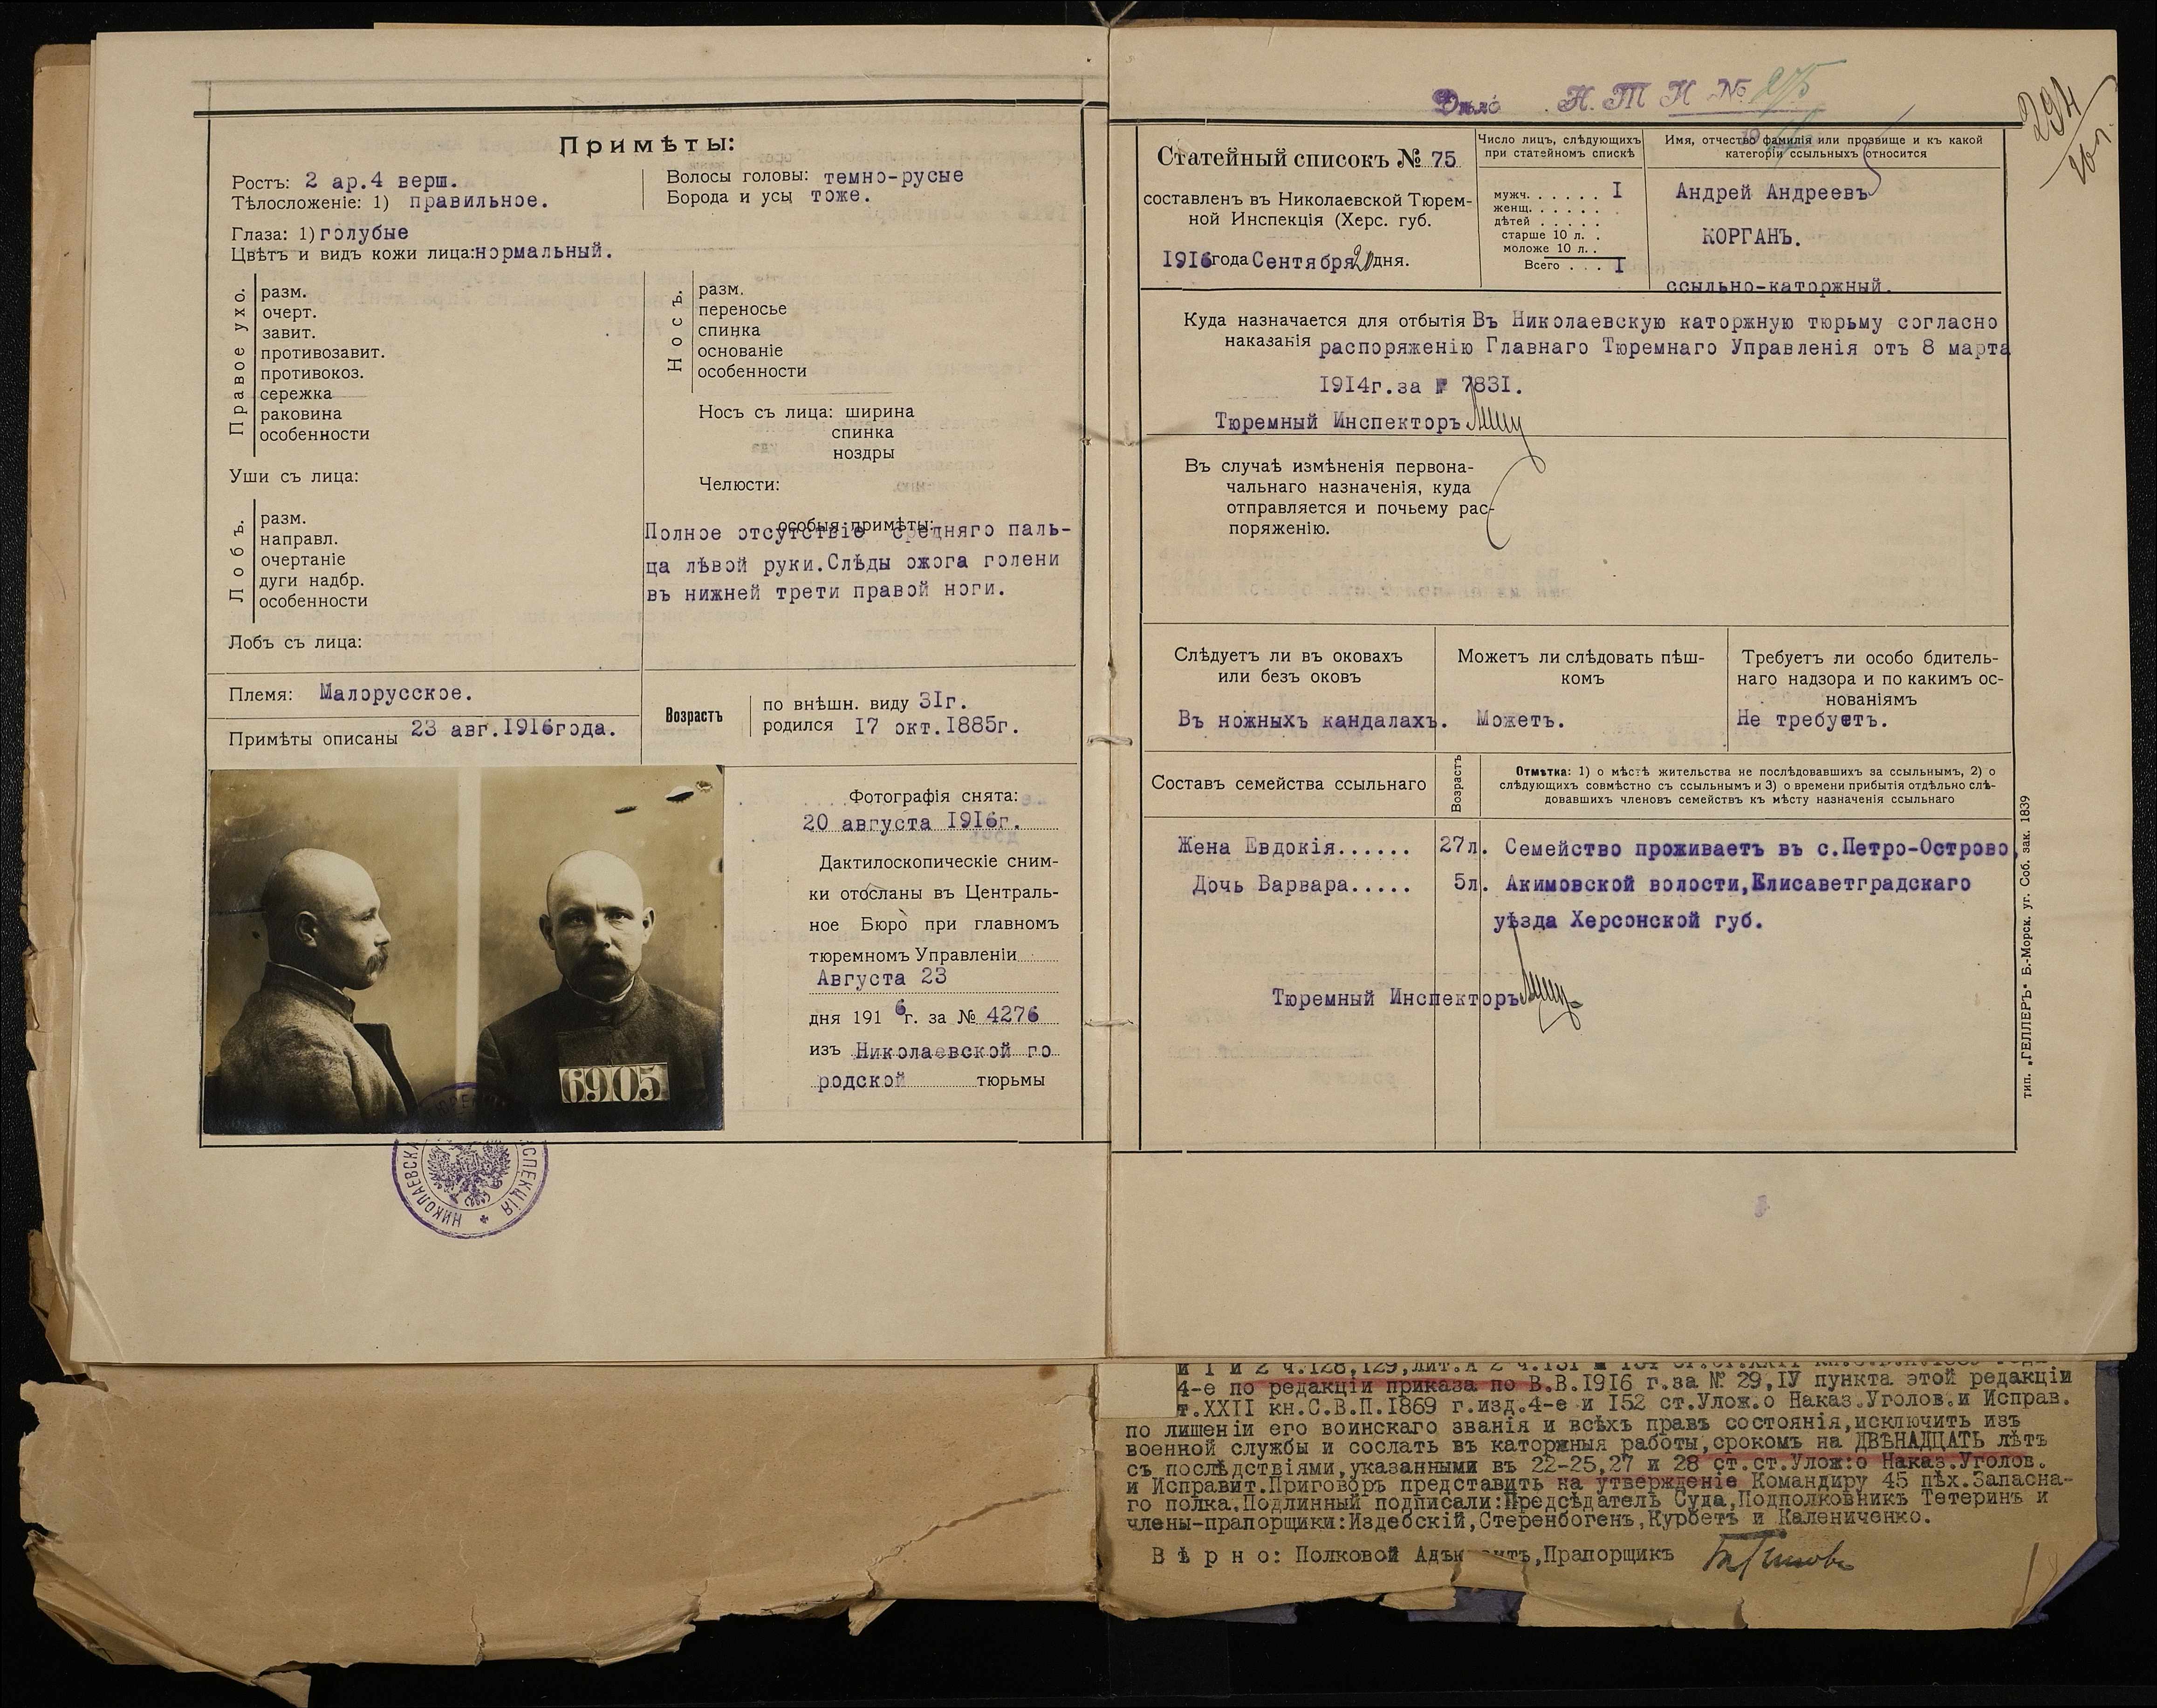 Примѣты:
Ростъ: 2 ар.4 верш.
Тѣлосложеніе: 1) правильное.
Волосы головы: темно-русые
Борода и усы тоже.
Глаза: 1) голубые
Цвѣтъ и видъ кожи лица: нормальный.
Правое ухо.
разм.
очерт.
завит.
противозавит.
противокоз.
сережка
раковина
особенности
Носъ.
разм.
переносье
спинка
основаніе
особенности
Носъ съ лица: ширина
спинка
ноздры
Уши съ лица:
Челюсти:
Лобъ.
разм.
направл.
очертаніе
дуги надбр.
особенности
Лобъ съ лица:
особыя примѣты:
Полное отсутствіе средняго паль-
ца лѣвой руки.Слѣды ожога голени
въ нижней трети правой ноги.
Племя: Малорусское.
Примѣты описаны 23 авг.1916года.
Возрастъ
по внѣшн. виду 31г.
родился 17 окт.1885г.
6905
Фотографія снята:
20 августа 1916г.
Дактилоскопическіе сним-
ки отосланы въ Централь-
ное Бюро при главномъ
тюремномъ Управленіи
Августа 23
дня 1916г. за № 4276
изъ Николаевской го
родской тюрьмы
НИКОЛАЕВСКА
СПЕКЦІЯ
Дѣло Н. Т. И № 275
294
Статейный списокъ № 75
составленъ въ Николаевской Тюрем-
ной Инспекція (Херс. губ.
1916года Сентября 20 дня.
Число лицъ, слѣдующихъ
при статейномъ спискѣ
мужч. . . . . . . I
женщ. . . . . . .
дѣтей . . . . .
старше 10 л. . .
моложе 10 л. . .
Всего . . . I
Имя, отчество фамилія или прозвище и къ какой
категоріи ссыльныхъ относится
Андрей Андреевъ
КОРГАНЪ.
ссыльно-каторжный.
Куда назначается для отбытія
наказанія
Въ Николаевскую каторжную тюрьму согласно
распоряженію Главнаго Тюремнаго Управленія отъ 8 марта
1914г.за № 7831.
Тюремный Инспекторъ
Въ случаѣ измѣненія первона-
чальнаго назначенія, куда
отправляется и почьему рас-
поряженію.
Слѣдуетъ ли въ оковахъ
или безъ оковъ
Въ ножныхъ кандалахъ.
Можетъ ли слѣдовать пѣш-
комъ
Можетъ.
Требуетъ ли особо бдитель-
наго надзора и по какимъ ос-
нованіямъ
Не требуетъ.
Составъ семейства ссыльнаго
Возрастъ
Отмѣтка: 1) о мѣстѣ жительства не послѣдовавшихъ за ссыльнымъ, 2) о
слѣдующихъ совмѣстно съ ссыльнымъ и 3) о времени прибытія отдѣльно слѣ-
довавшихъ членовъ семействъ къ мѣсту назначенія ссыльнаго
Жена Евдокія...... 27л. Семейство проживаетъ въ с.Петро-Острово,
Дочь Варвара..... 5л. Акимовской волости,Елисаветградскаго
уѣзда Херсонской губ.
Тюремный Инспекторъ
тип. „ГЕЛЛЕРЪ“ Б.-Морск. уг. Соб. зак. 1839
4-е по редакціи приказа по В.В.1916 г.за № 29,IУ пункта этой редакціи
т.XXII кн.С.В.П.1869 г.изд.4-е и 152 ст.Улож.о Наказ.Уголов.и Исправ.
по лишеніи его воинскаго званія и всѣхъ правъ состоянія,исключить изъ
военной службы и сослать въ каторжныя работы,срокомъ на ДВѢНАДЦАТЬ лѣтъ
съ послѣдствіями,указанными въ 22-25,27 и 28 ст.ст.Улож:о Наказ.Уголов.
и Исправит.Приговоръ представить на утвержденіе Командиру 45 пѣх.Запасна-
го полка.Подлинный подписали:Предсѣдатель Суда,Подполковникъ Тетеринъ и
члены-прапорщики:Издебскій,Стеренбогенъ,Курбетъ и Калениченко.
Вѣрно: Полковой ,Прапорщикъ